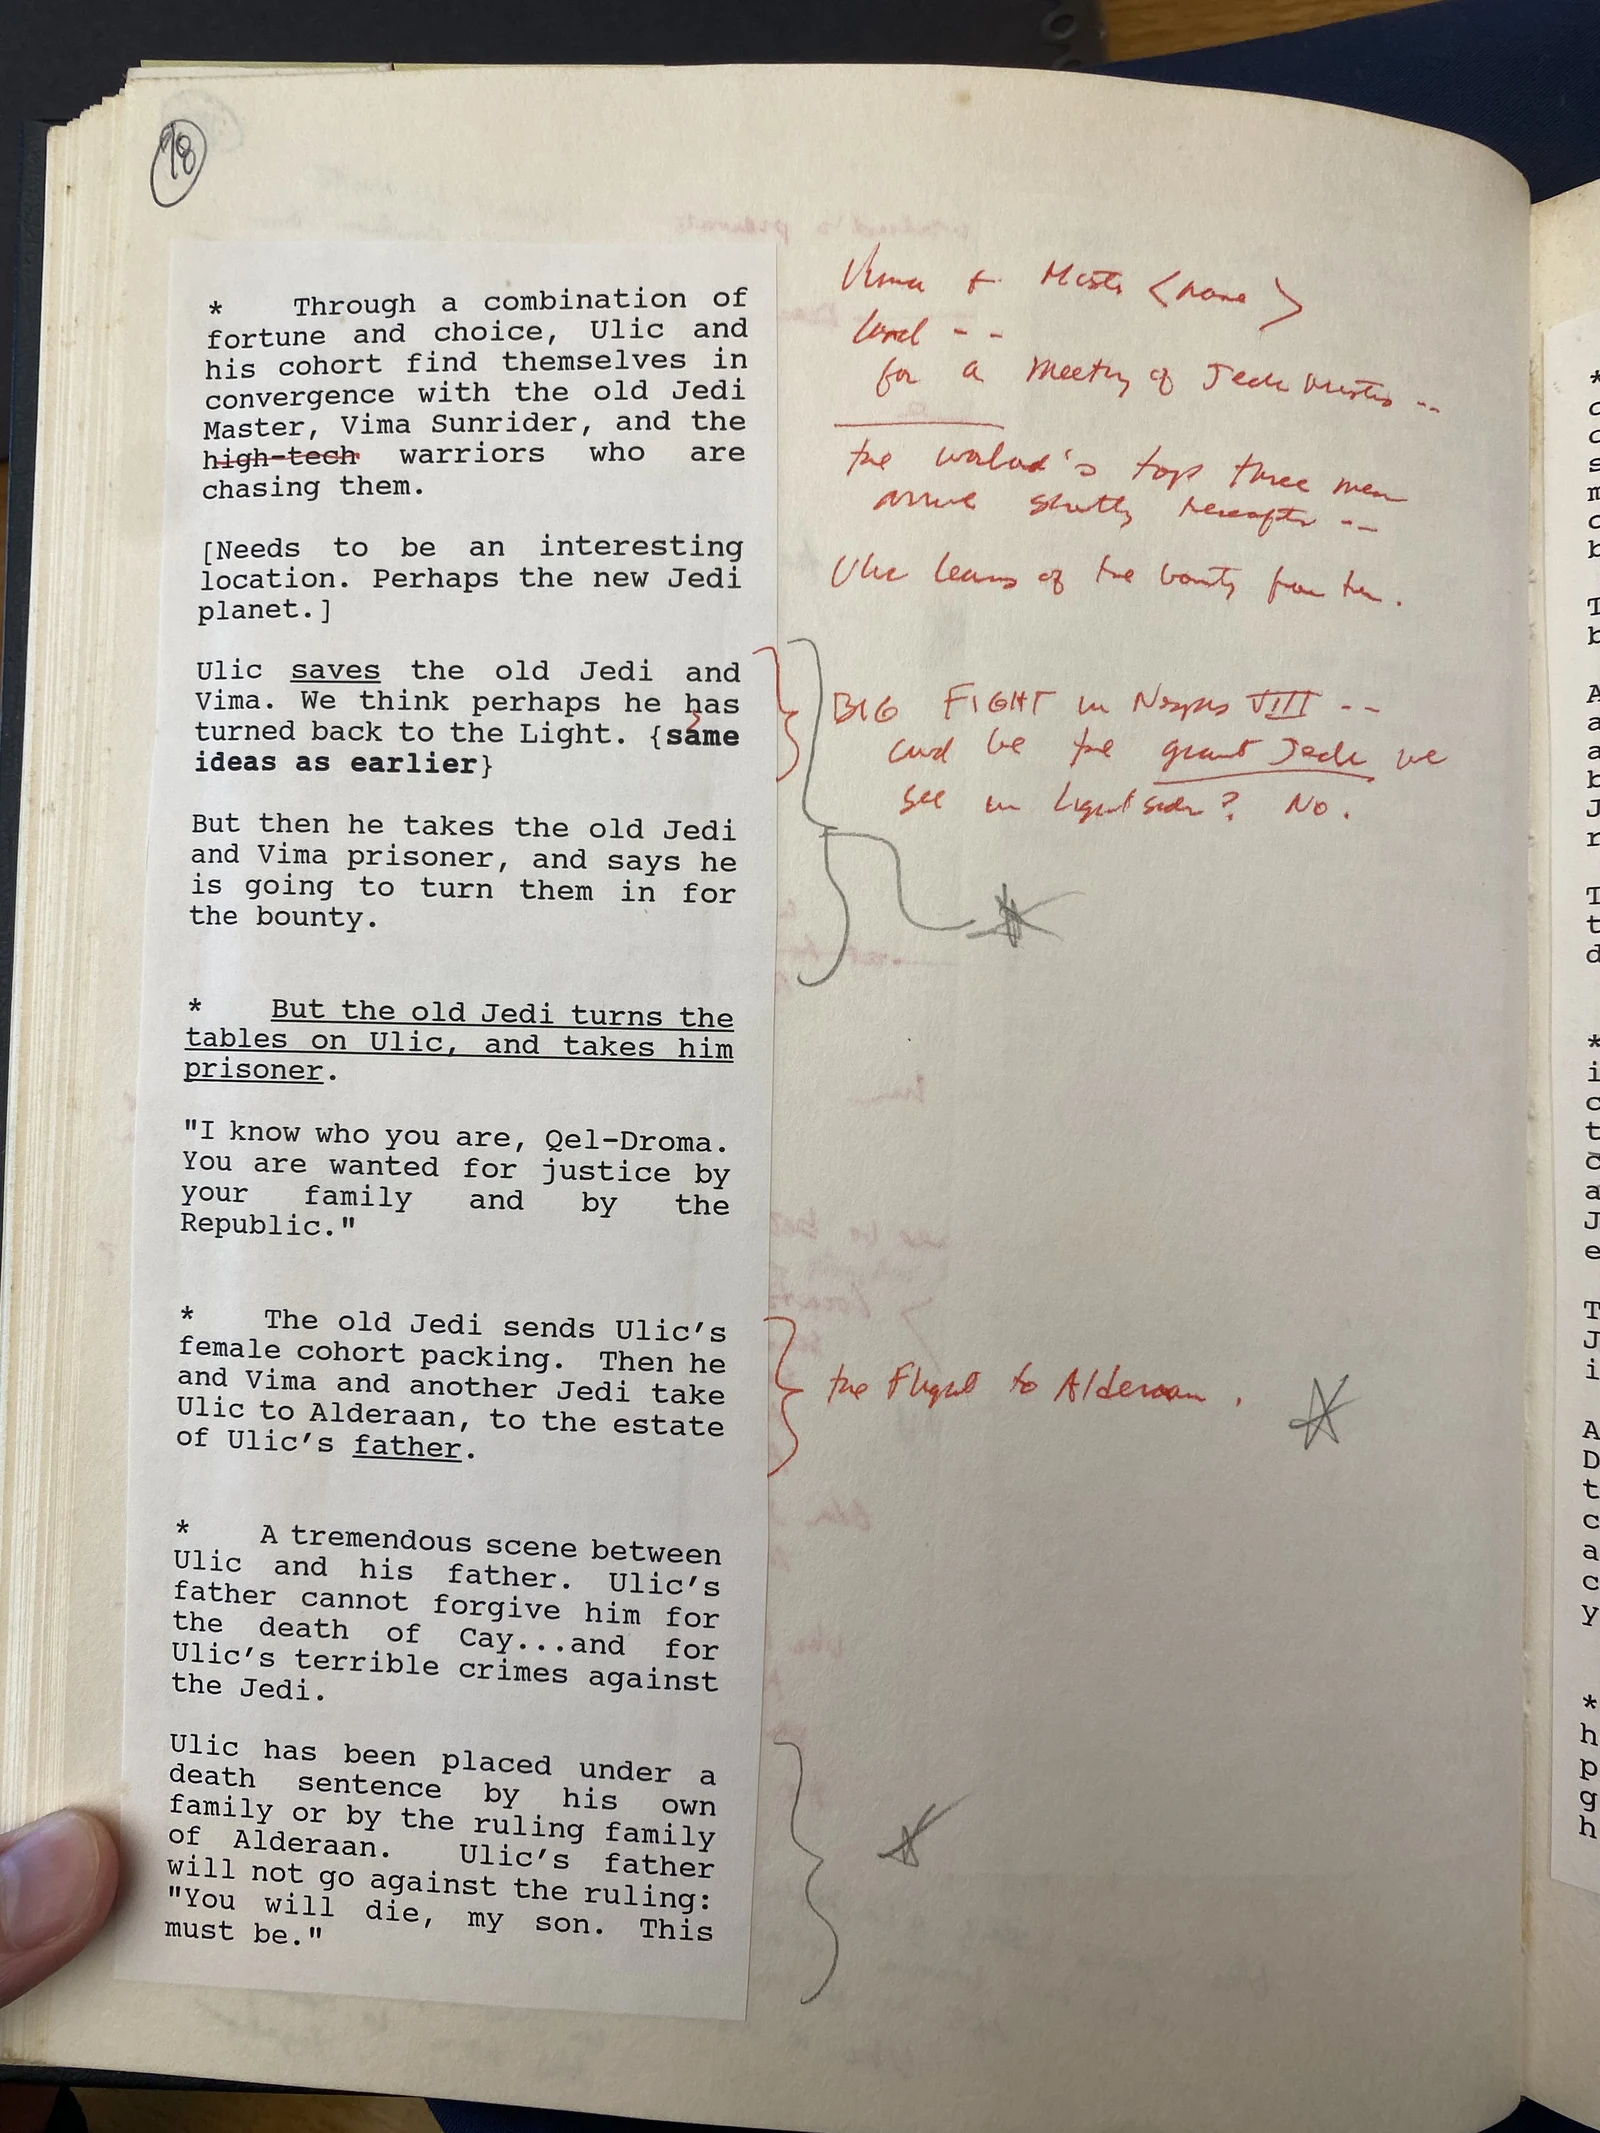 78
* Through a combination of
fortune and choice, Ulic and
his cohort find themselves in
convergence with the old Jedi
Master, Vima Sunrider, and the
high-tech warriors who are
chasing them.
[Needs to be an interesting
location. Perhaps the new Jedi
planet.]
Ulic saves the old Jedi and
Vima. We think perhaps he has
turned back to the Light. {same
ideas as earlier}
But then he takes the old Jedi
and Vima prisoner, and says he
is going to turn them in for
the bounty.
* But the old Jedi turns the
tables on Ulic, and takes him
prisoner.
"I know who you are, Qel-Droma.
You are wanted for justice by
your family and by the
Republic."
* The old Jedi sends Ulic's
female cohort packing. Then he
and Vima and another Jedi take
Ulic to Alderaan, to the estate
of Ulic's father.
* A tremendous scene between
Ulic and his father. Ulic's
father cannot forgive him for
the death of Cay...and for
Ulic's terrible crimes against
the Jedi.
Ulic has been placed under a
death sentence by his own
family or by the ruling family
of Alderaan. Ulic's father
will not go against the ruling:
"You will die, my son. This
must be."
Vima + Master <name>
land --
for a meeting of Jedi Masters --
the warlord's top three men
arrive shortly hereafter --
Ulic learns of the bounty from them.
BIG FIGHT in Nespis VIII --
could be the giant Jedi we
see in Lightsider? No.
the Flight to Alderaan.